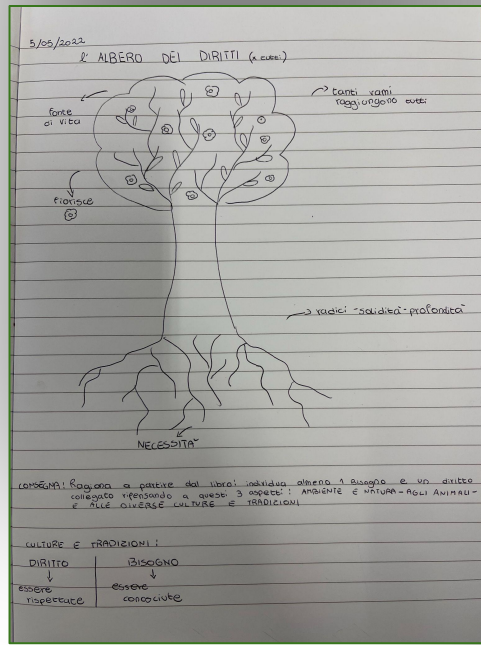 5/05/2022
L'ALBERO DEI DIRITTI (x tutti)
fonte
di vita
tanti rami
raggiungono tutti
fiorisce
radici - solidità - profondità
NECESSITA'
CONSEGNA: Ragiona a partire dal libro: individua almeno 1 bisogno e un diritto
collegato ripensando a questi 3 aspetti: AMBIENTE E NATURA - AGLI ANIMALI -
E ALLE DIVERSE CULTURE E TRADIZIONI
CULTURE E TRADIZIONI:
DIRITTO BISOGNO
essere essere
rispettate conosciute